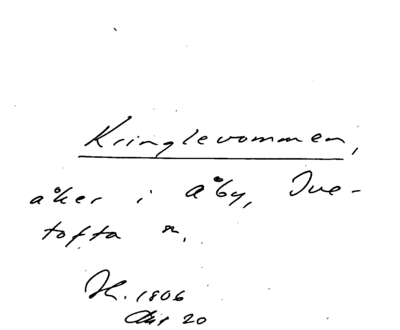 Kringlevommen,
åker i Åby, Ive-
tofta sn.
Sk. 1806
Akt 20